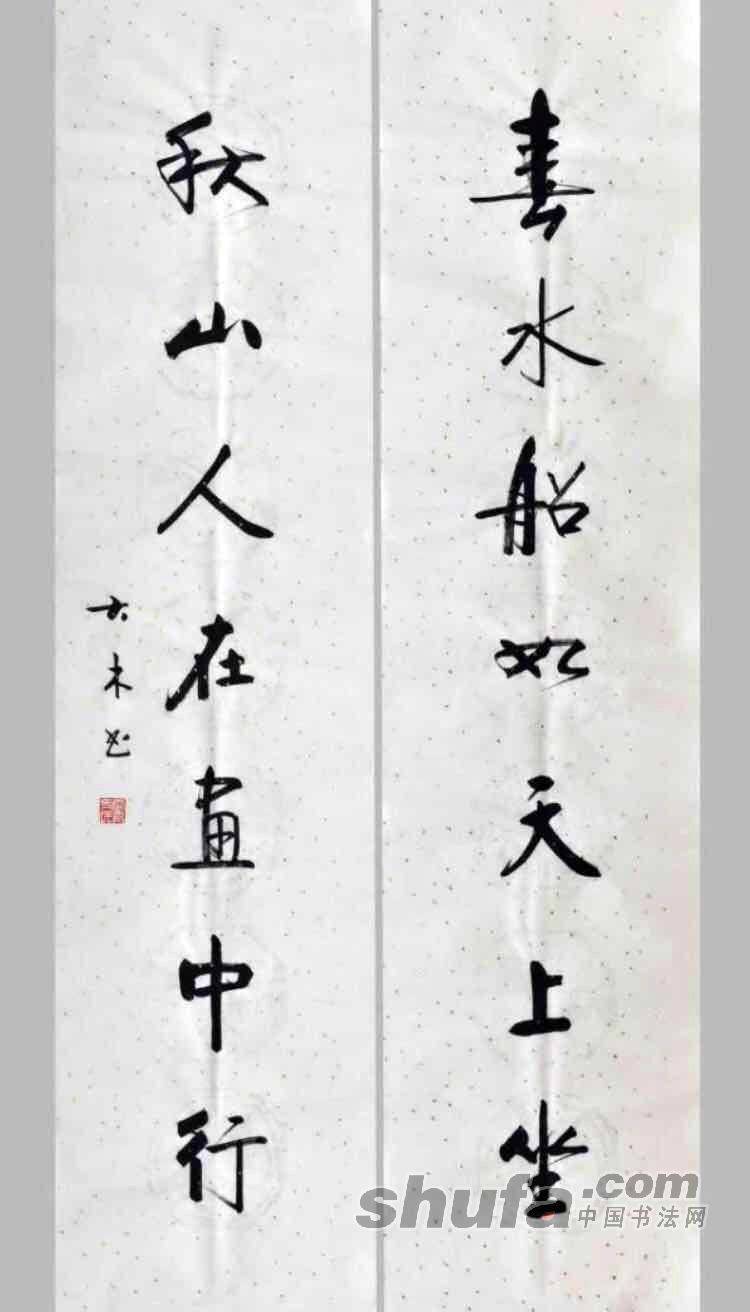 春水船如天上坐
秋山人在画中行
大木书
shufa.com
中国书法网